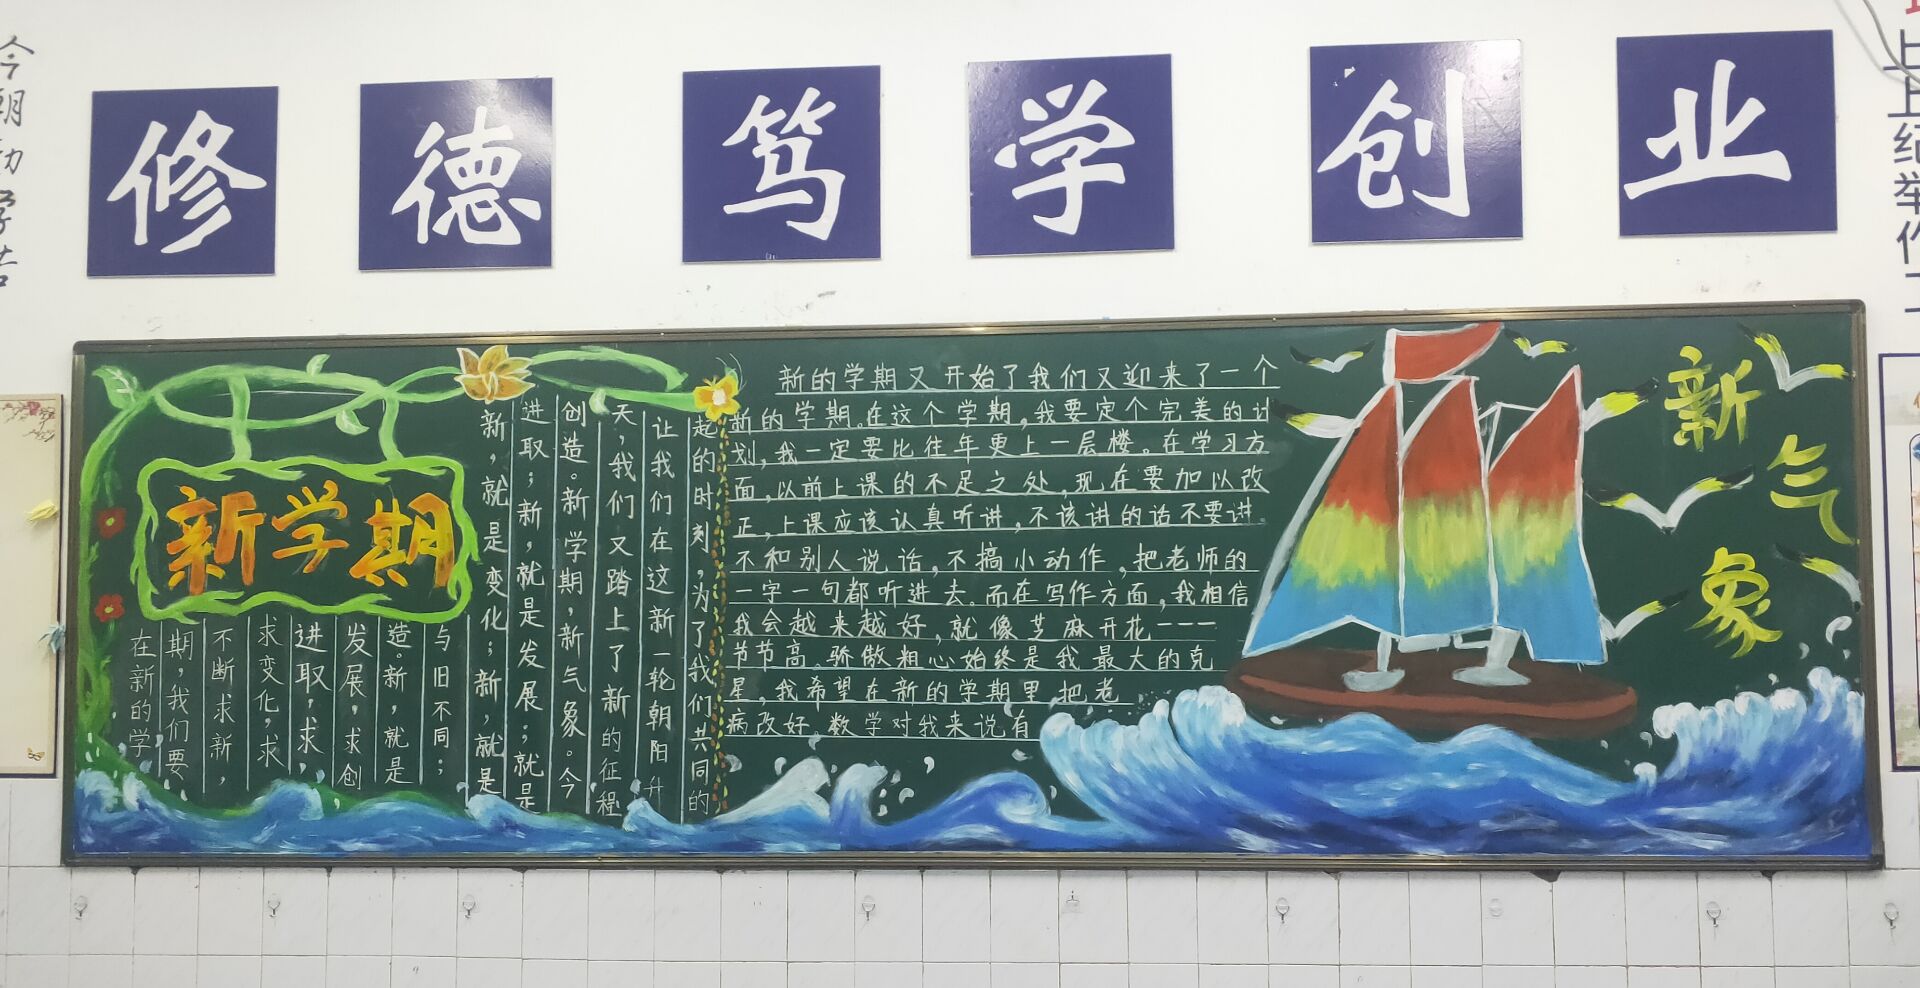 修德笃学创业
今朝
新学期
在新的学
期，我们要
不断求新，
求变化，求
进取，求
发展，求创
造。新，就是
与旧不同；
新，就是变化；新，就是
进取；新，就是发展；就是
创造。新学期，新气象。今
天，我们又踏上了新的征程
让我们在这新一轮朝阳升
起的时刻，为了我们共同的
新的学期又开始了我们又迎来了一个
新的学期。在这个学期，我要定个完美的计
划，我一定要比往年更上一层楼。在学习方
面，以前上课的不足之处，现在要加以改
正，上课应该认真听讲，不该讲的话不要讲。
不和别人说话，不搞小动作，把老师的
一字一句都听进去。而在写作方面，我相信
我会越来越好，就像芝麻开花---
节节高。骄傲粗心始终是我最大的克
星，我希望在新的学期里把老
病改好 数学对我来说有
新气象